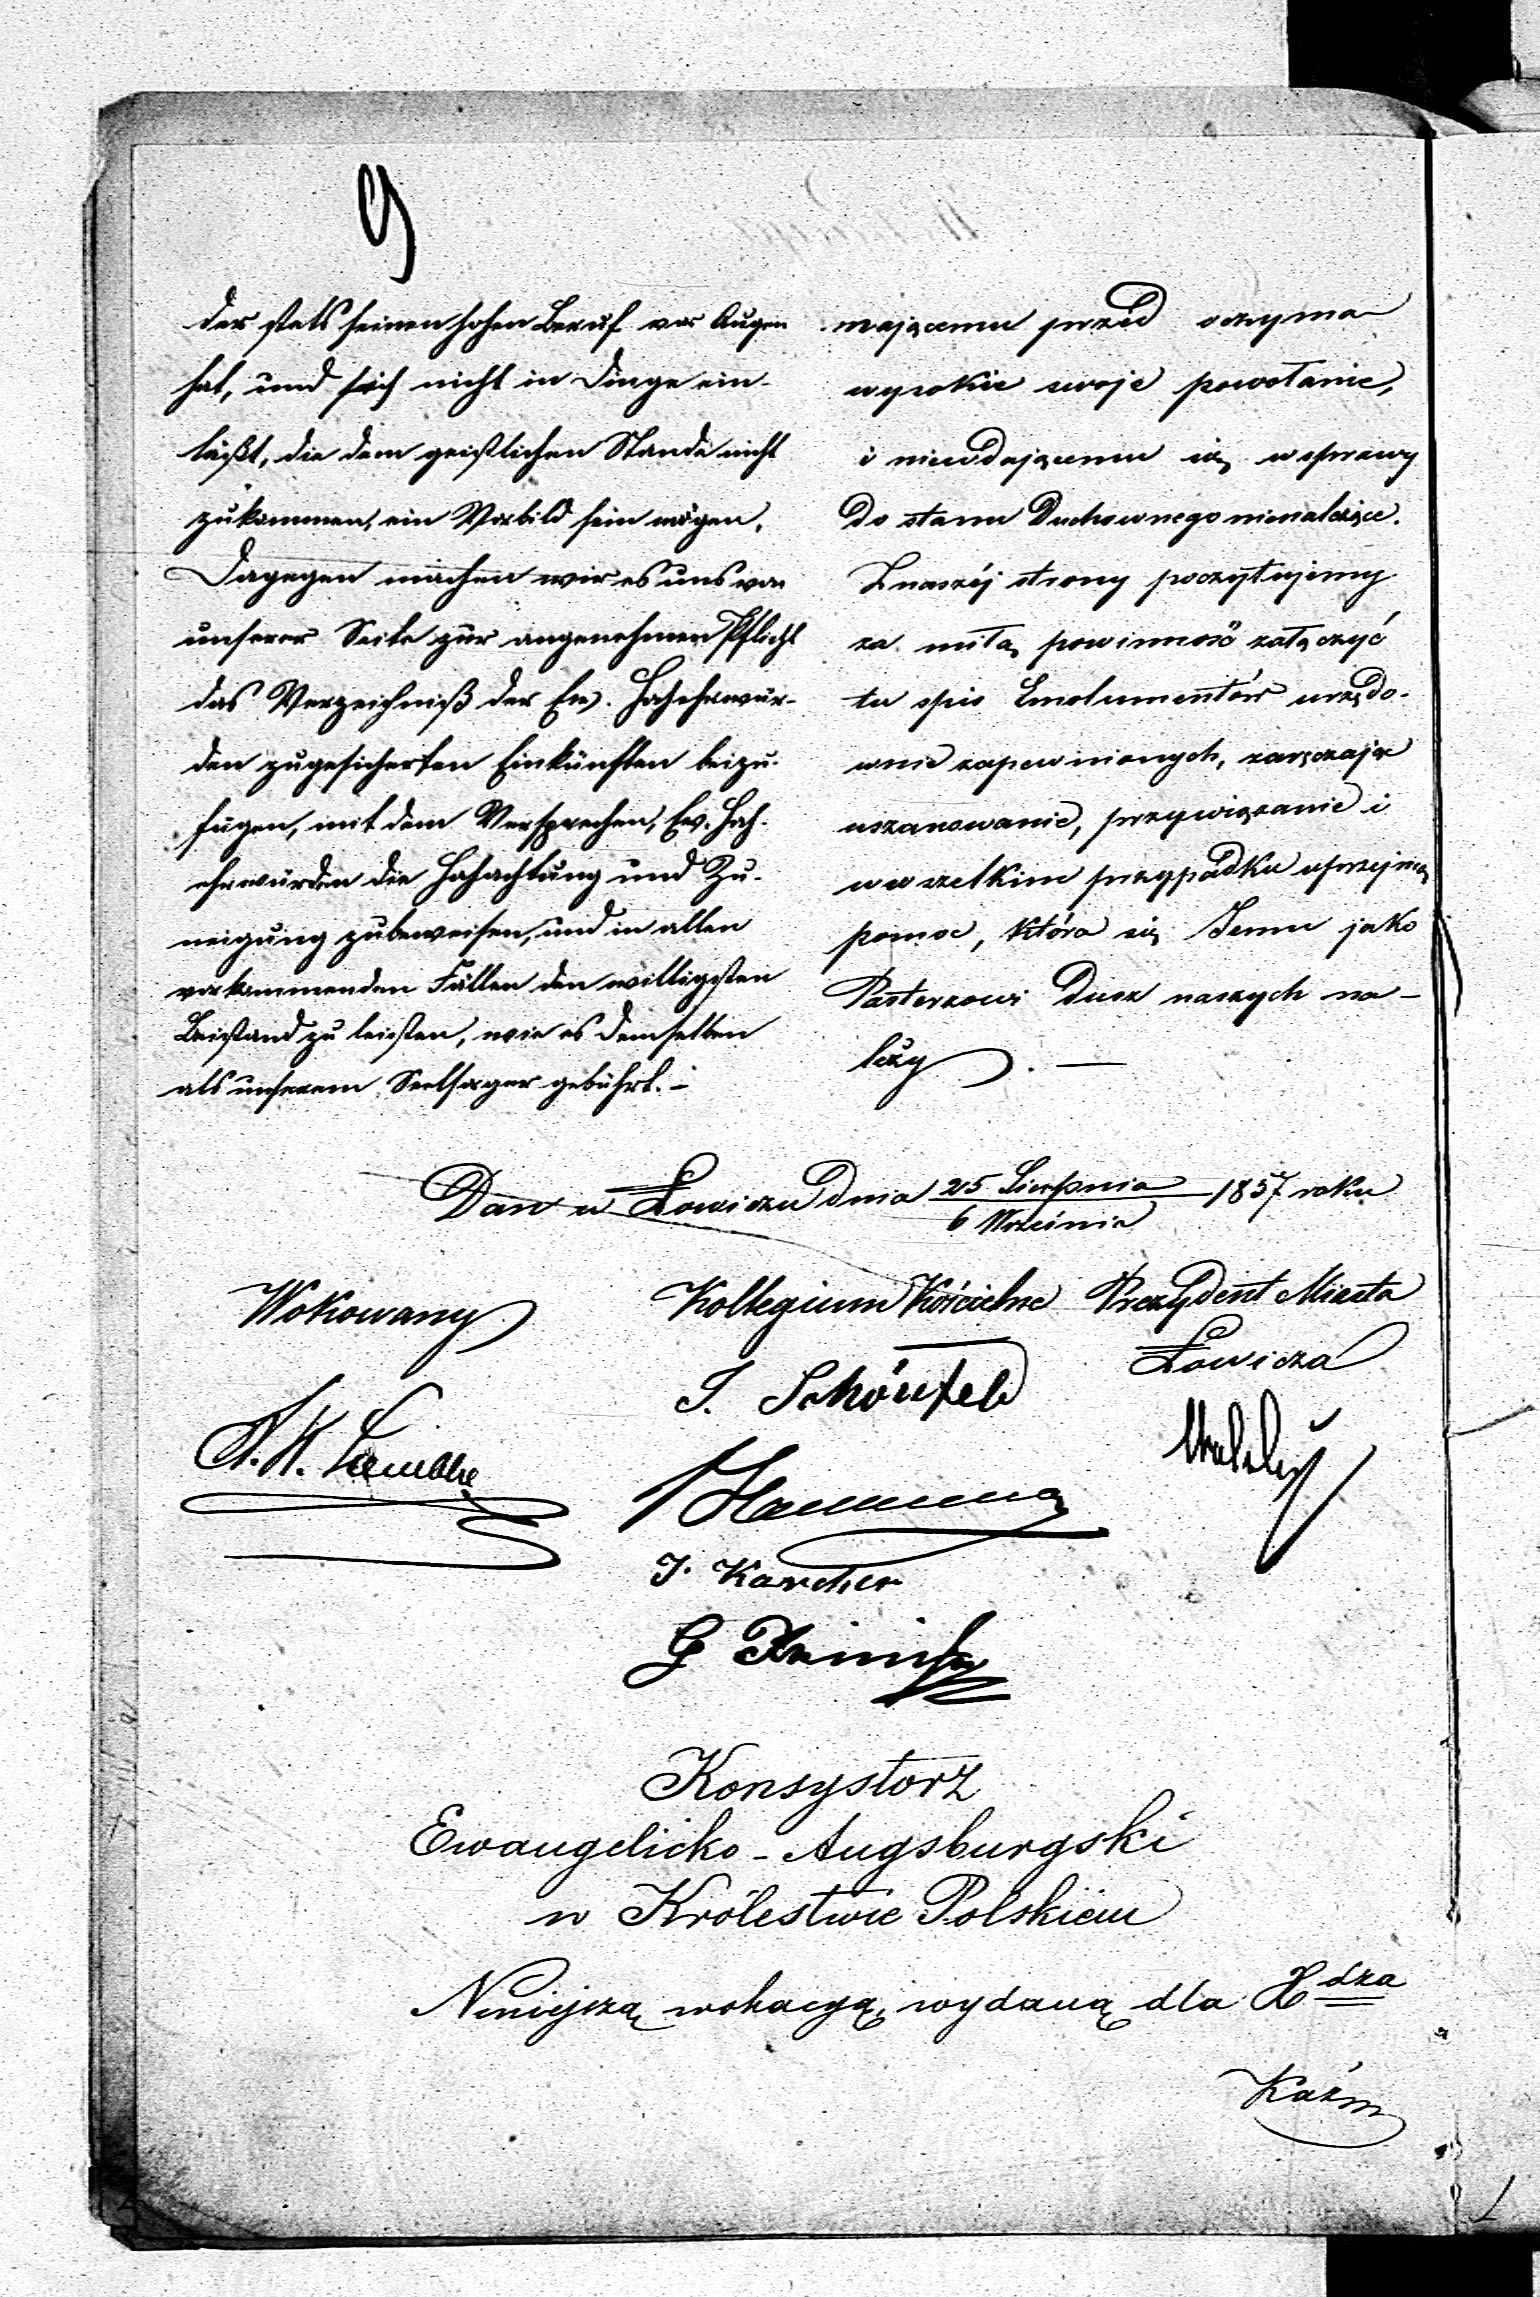 9
der stets seinen hohen Beruf vor Augen
hat, und sich nicht in Dinge ein-
läßt, die dem geistlichen Stande nicht
zukommen, ein Vorbild sein mögen.
Dagegen machen wir es uns von
unserer Seite zur angenehmen Pflicht
das Verzeichniß der Ew. Hochehrwür-
den zugesicherten Einkünften beizu-
fügen, mit dem Versprechen, Ew. Hoch-
ehrwürden die Hochachtung und Zu-
neigung zu beweisen, und in allen
vorkommenden Fällen den willigsten
Beistand zu leisten, wie es demselben
als unserem Seelsorger gebührt. –
mającemu przed oczyma
wysokie swoje powołanie,
i niewdającemu się w sprawy
do stanu Duchownego nienależące.
Z naszéj strony poczytujemy
za miłą powinność załączyć
tu spis Emolumentów urzędo-
wnie zapewnionych, zaręczając
uszanowanie, przywiązanie i
w wszelkim przypadku uprzejmą
pomoc, która się Jemu jako
Pasterzowi Dusz naszych na-
leży. —
Dan w Łowiczu dnia 25 Sierpnia / 6 Września 1857 roku
Wokowany
Kollegium Kościelne
Prezydent Miasta
Łowicza
J. Schönfeld
J. Karcher
Konsystorz
Ewangelicko-Augsburgski
w Królestwie Polskiem
Niniejszą wokacyą, wydaną dla Xdza
Kaźm